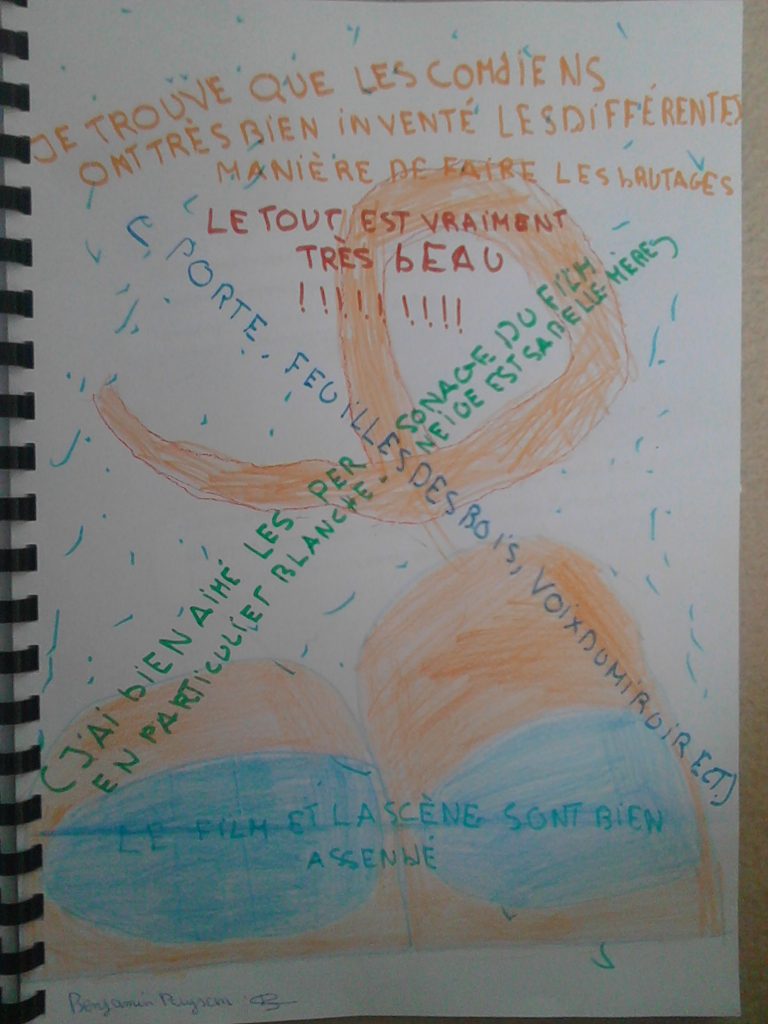 JE TROUVE QUE LES COMdIENS
ONT TRÈS BIEN INVENTÉ LES DIFFÉRENTES
MANIÈRE DE FAIRE LES bRUTAGES
LE TOUT EST VRAIMENT
TRÈS bEAU
!!!!!!!!!
( PORTE, FEUILLES DES BOIS, VOIX DU MIROIR ECT.)
(J'AI bIEN AIMÉ LES PERSONAGE DU FILM
EN PARTICULIER BLANCHE-NEIGE EST SA BELLE MÈRE)
LE FILM ET LA SCÈNE SONT BIEN
ASSENbLÉ
Benjamin